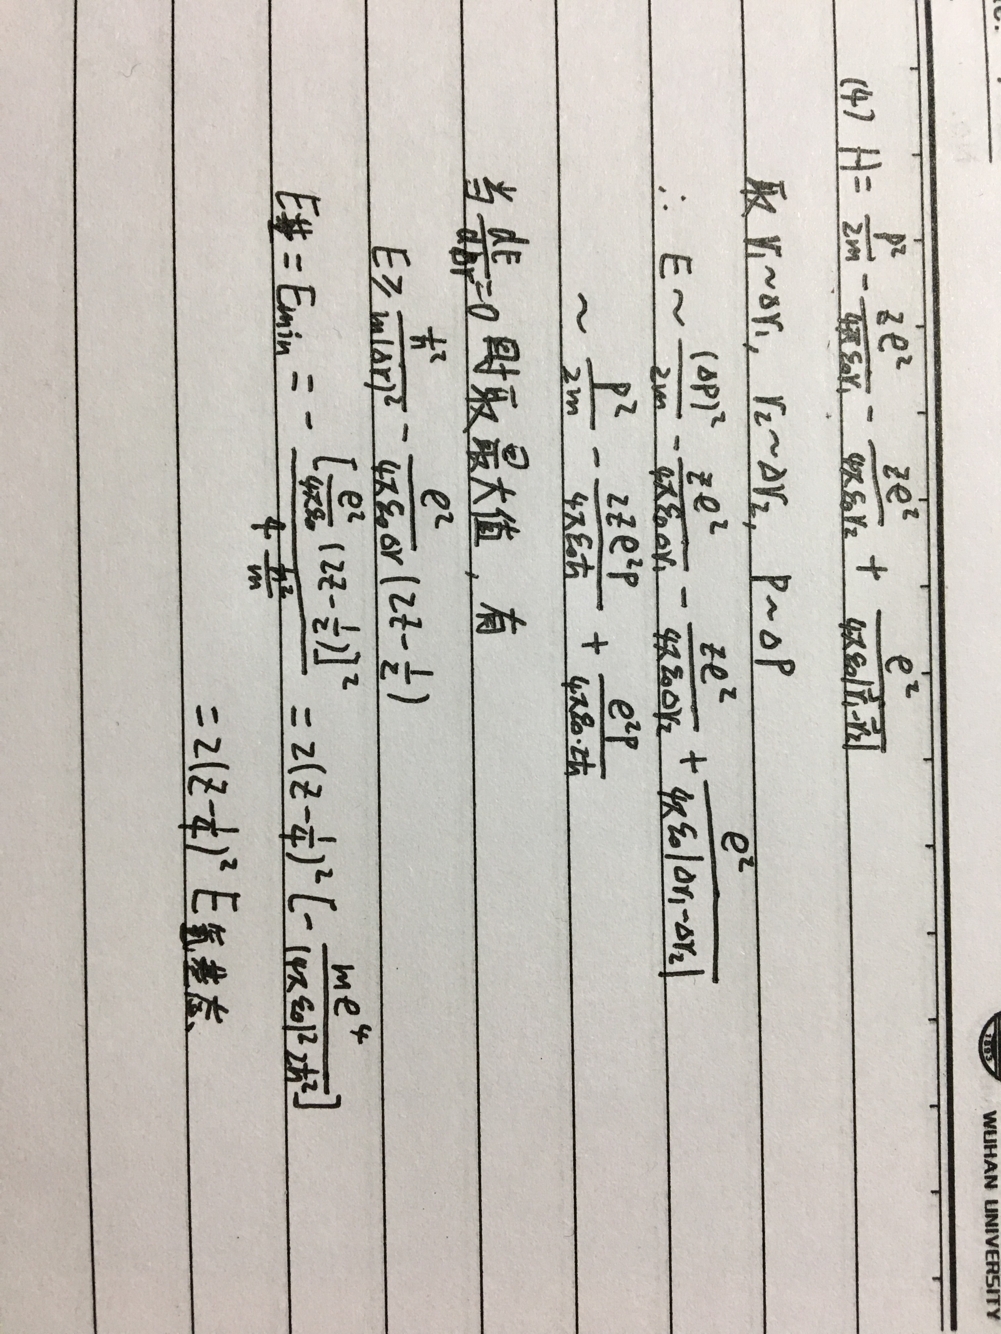 WUHAN UNIVERSITY
1893
(4) H = p²/2m - ze²/4πε₀r₁ - ze²/4πε₀r₂ + e²/4πε₀|r⃗₁-r⃗₂|
取 r₁~Δr₁, r₂~Δr₂, P~ΔP
∴ E ~ (ΔP)²/2m - ze²/4πε₀Δr₁ - ze²/4πε₀Δr₂ + e²/4πε₀|Δr₁-Δr₂|
~ p²/2m - 2ze²p/4πε₀ħ + e²p/4πε₀·2ħ
当 dE/dΔr=0 时取最大值, 有
E ≥ ħ²/m(Δr)² - e²/4πε₀Δr (2z-1/2)
E基 = Emin = - [e²/4πε₀ (2z-1/2)]² / 4 ħ²/m = 2(z-1/4)² [- me⁴/(4πε₀)²2ħ²]
= 2(z-1/4)² E氢基态